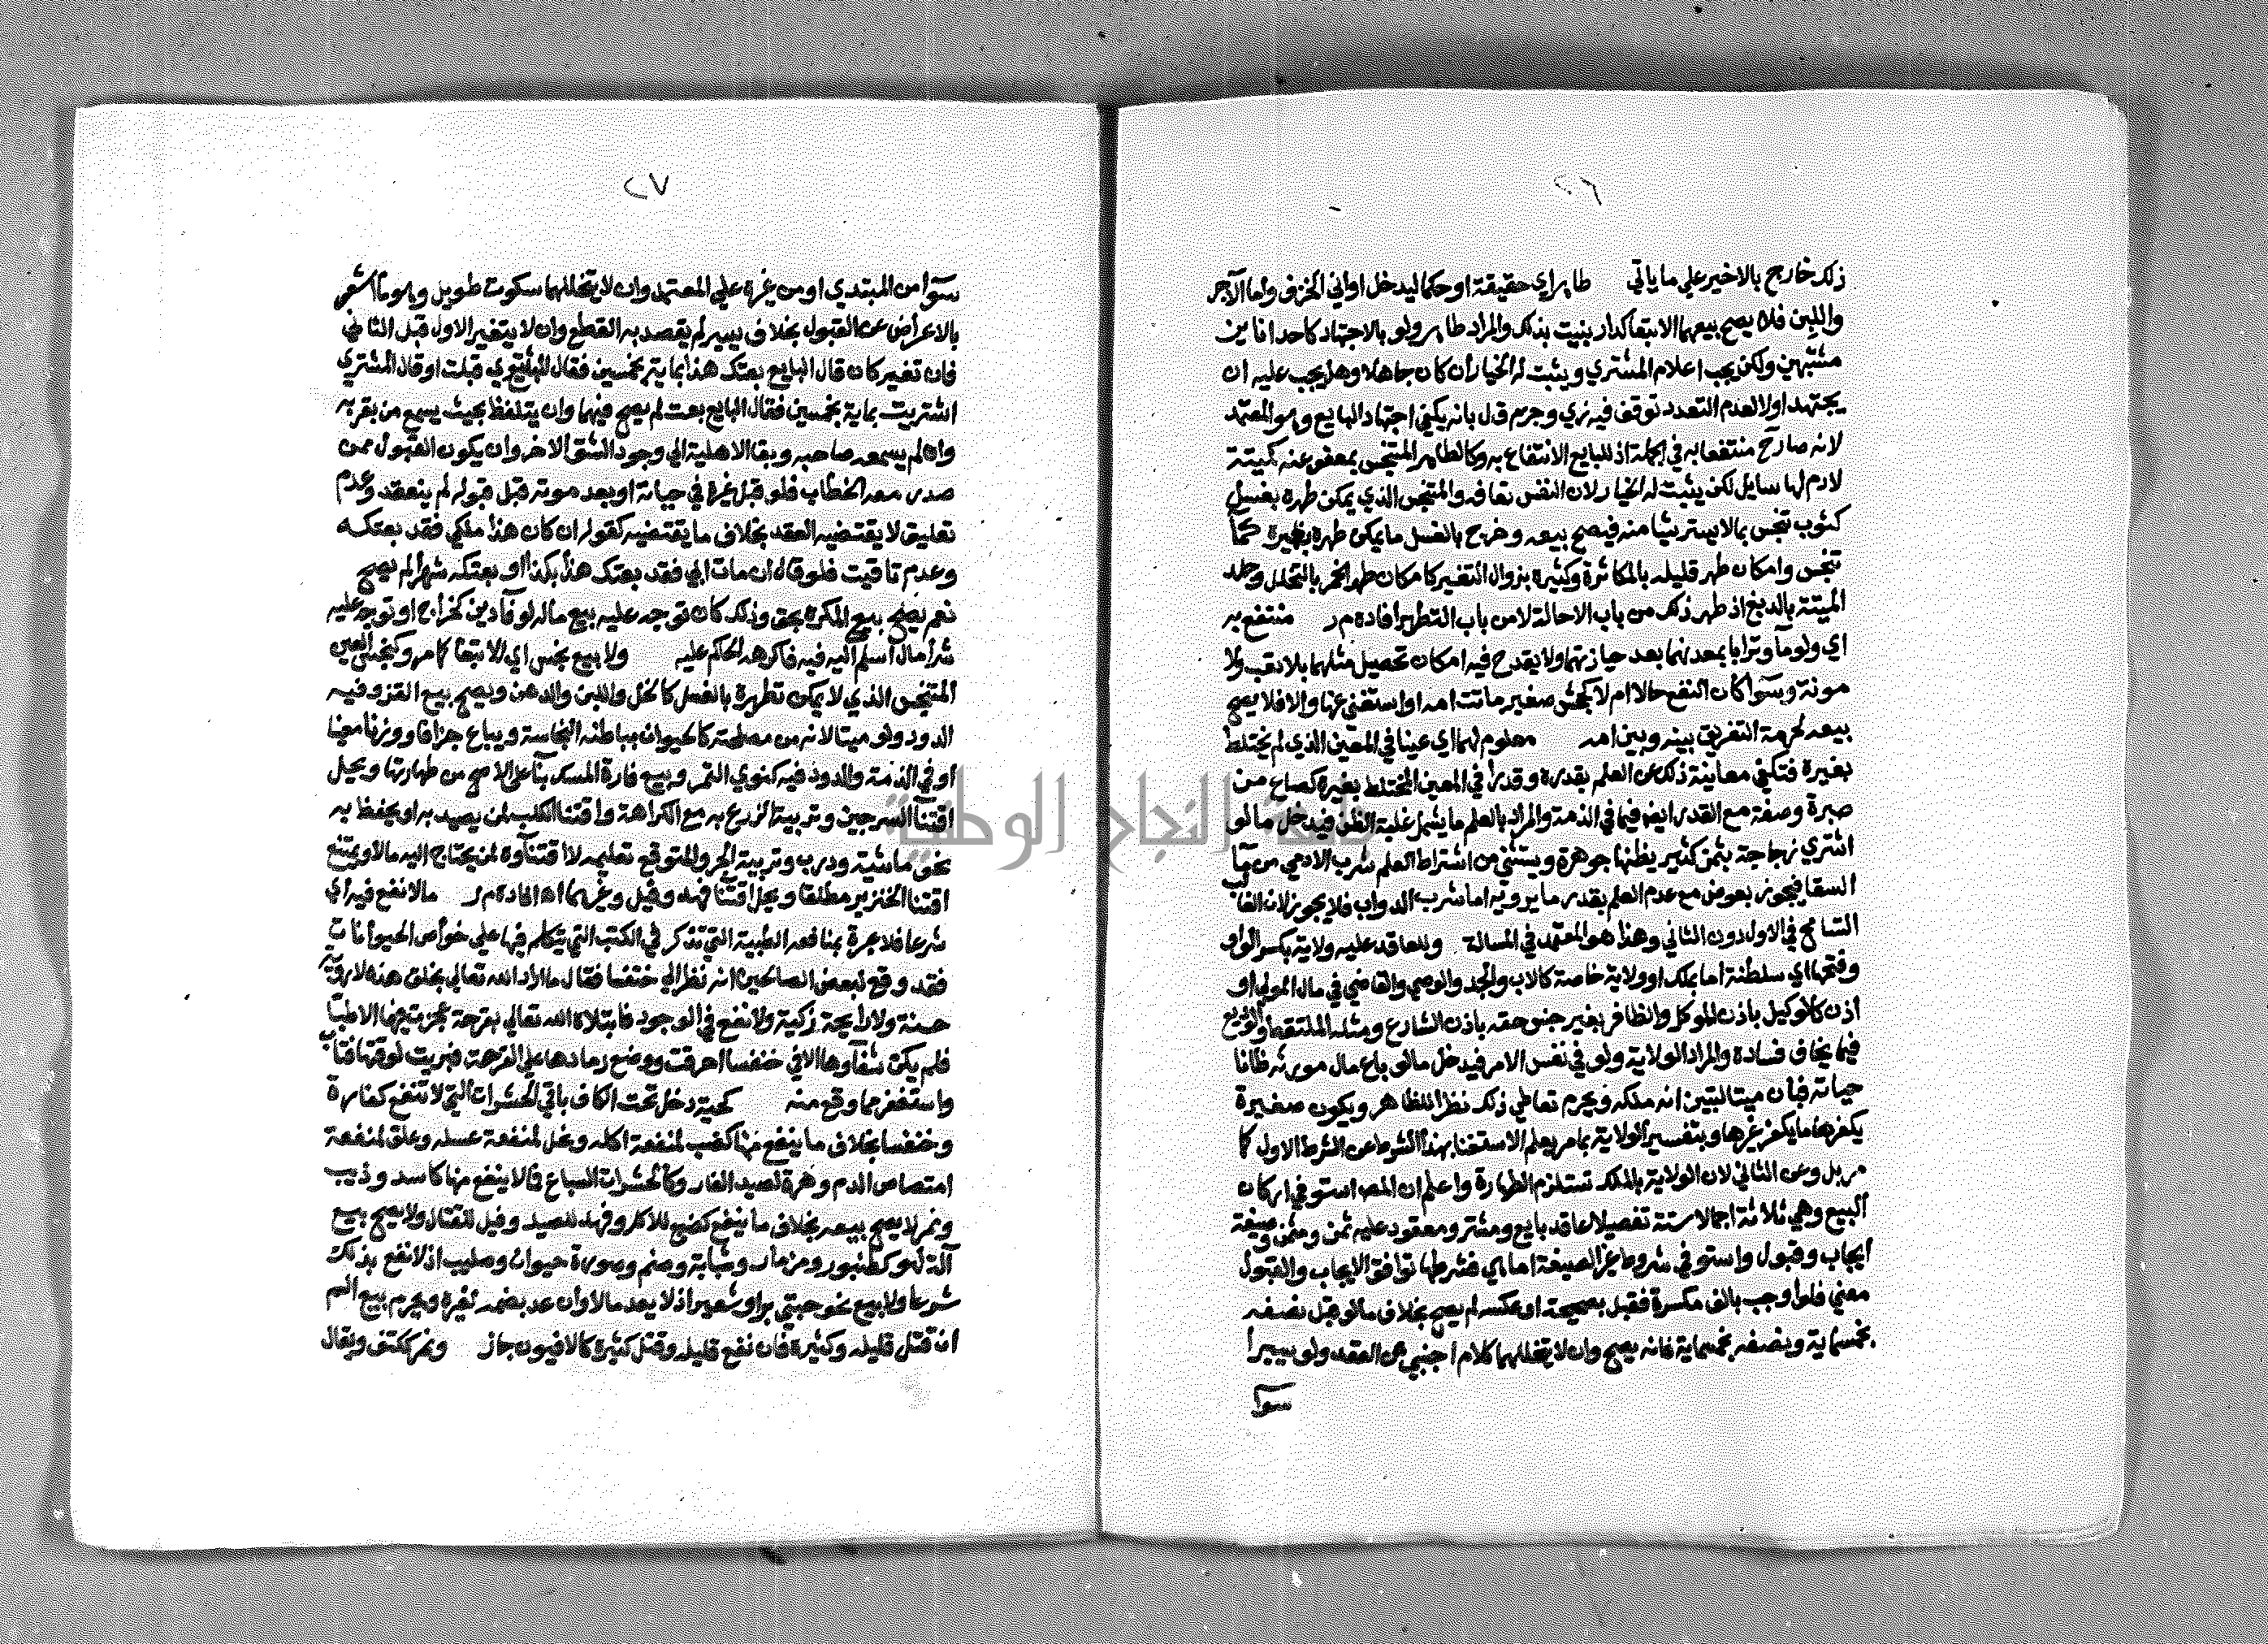 ٢٦
ذلك خارج بالاخير علي ما ياتي طاهر اي حقيقة او حكما ليدخل اواني الخزف واما الآجر
واللبن فلا يصح بيعهما الا تبعا كدار بنيت بذلك والمراد طاهر ولو بالاجتهاد كاحد اناين
مشتبهين ولكن يجب اعلام المشتري ويثبت له الخيار ان كان جاهلا وهل يجب عليه ان
يجتهد او لا لعدم التعدد توقف فيه زي وجزم ق ل بانه يكفي اجتهاد البايع وهو المعتمد
لانه صار ح منتفعا به في الجملة اذ للبايع الانتفاع به وكالطاهر المتنجس بمعفو عنه كميتة
لادم لها سايل لكن يثبت له الخيار لان النفس تعافه والمتنجس الذي يمكن طهره بغسل
كثوب تنجس بما لا يستر شيا منه فيصح بيعه وخرج بالغسل ما يمكن طهره بغيره كمآ
تنجس وامكان طهر قليله بالمكاثرة وكثيره بزوال التغير كامكان طهر الخمر بالتخلل وجلد
الميتة بالدبغ اذ طهر ذلك من باب الاحالة لا من باب التطهير افاده م ر منتفع به
اي ولو مآ وترابا بمعدنهما بعد حيازتهما ولا يقدح فيه امكان تحصيل مثلهما بلا تعب ولا
مونة وسوا كان النفع حالا ام لا كجحش صغير ماتت امه او استغني عنها والا فلا يصح
بيعه لحرمة التفريق بينه وبين امه معلوم لهما اي عينا في المعين الذي لم يختلط
بغيره فتكفي معاينة ذلك عن العلم بقدره وقدرا في المعين المختلط بغيره كصاع من
صبرة وصفة مع القدر ايضا فيما في الذمة والمراد بالعلم ما يشمل غلبة الظن فيدخل ما لو
اشتري زجاجة بثمن كثير يظنها جوهرة ويستثني من اشتراط العلم شرب الادمي من مآ
السقا فيجوز بعوض مع عدم العلم بقدر ما يرويه اما شرب الدواب فلا يجوز لان الغالب
التسامح في الاول دون الثاني وهذا هو المعتمد في المسالة وللعاقد عليه ولاية بكسر الواو
وفتحها اي سلطنة اما بملك او ولاية خاصة كالاب والجد والوصي والقاضي في مال المولي او
اذن كالوكيل باذن الموكل والظافر بغير جنس حقه باذن الشارع ومثله الملتقط والوديع
فيما يخاف فساده والمراد الولاية ولو في نفس الامر فيدخل ما لو باع مال مورثه ظانا
حياته فبان ميتا لتبين انه ملكه ويحرم تعاطي ذلك نظرا للظاهر ويكون صغيرة
يكفرها ما يكفر غيرها وبتفسير الولاية بما مر يعلم الاستغنا بهذا الشرط عن الشرط الاول كا
مر بل وعن الثاني لان الولاية بالملك تستلزم الطهارة واعلم ان المص استوفي اركان
البيع وهي ثلاثة اجمالا ستة تفصيلا عاقد بايع ومشتر ومعقود عليه ثمن ومثمن وصيغة
ايجاب وقبول واستوفي شروط غير الصيغة اما هي فشرطها توافق الايجاب والقبول
معني فلو اوجب بالف مكسرة فقبل بصحيحة او عكسه لم يصح بخلاف ما لو قبل نصفه
بخمسماية ونصفه بخمسماية فانه يصح وان لا يتخللهما كلام اجنبي عن العقد ولو يسيرا
سوا
٢٧
سوآ من المبتدي او من غيره علي المعتمد وان لا يتخللهما سكوت طويل وهو ما اشعر
بالاعراض عن القبول بخلاف يسير لم يقصد به القطع وان لا يتغير الاول قبل الثاني
فان تغير كان قال البايع بعتك هذا بماية بخمسين فقال قبلت او قال المشتري
اشتريت بماية بخمسين فقال البايع بعت لم يصح فيهما وان يتلفظ بحيث يسمع من بقربه
وان لم يسمعه صاحبه وبقا الاهلية الي وجود الشق الاخر وان يكون القبول ممن
صدر معه الخطاب فلو قبل غيره في حياته او بعد موته قبل قبوله لم ينعقد وعدم
تعليق لا يقتضيه العقد بخلاف ما يقتضيه كقوله ان كان هذا ملكي فقد بعتكه
وعدم تاقيت فلو قال ان مات ابي فقد بعتك هذا بكذا او بعتكه شهرا لم يصح
نعم يصح بيع المكره بحق وذلك كان توجه عليه بيع ماله لوفآ دين كخراج او توجه عليه
شرآ مال اسلم اليه فيه فاكرهه الحاكم عليه ولا بيع نجس اي الا تبعا كامر وكنجس العين
المتنجس الذي لا يمكن تطهيره بالغسل كالخل واللبن والدهن ويصح بيع القز وفيه
الدود ولو ميتا لانه من مصلحته كالحيوان بباطنه النجاسة ويباع جزافا ووزنا معينا
او في الذمة والدود فيه كنوي التمر وبيع فارة المسك بنآ علي الاصح من طهارتها ويحل
اقتنآ السرجين وتربية الزرع به مع الكراهة واقتنا الكلب لمن يصيد به او يحفظ به
نحو ماشية ودرب وتربية الجرو المتوقع تعليمه لا اقتنآوه لمن يحتاج اليه مالا ويمتنع
اقتنا الخنزير مطلقا ويحل اقتنا فهد وفيل وغيرهما اه افاده م ر مالا نفع فيه اي
شرعا فلا عبرة بمنافعه الطبية التي تذكر في الكتب التي يتكلم فيها علي خواص الحيوانات
فقد وقع لبعض الصالحين انه نظر الي خنفسا فقال ما اراد الله تعالي بخلق هذه لا روية
حسنة ولا رايحة زكية ولا نفع في الوجود فابتلاه الله تعالي بقرحة عجزت فيها الاطبآ
فلم يكن شفآوها الا في خنفسا احرقت ووضع رمادها علي القرحة فبريت لوقتها فتاب
واستغفر مما وقع منه كحية دخل تحت الكاف باقي الحشرات التي لا تنفع كفارة
وخنفسا بخلاف ما ينفع منها كضب لمنفعة اكله ونحل لمنفعة عسله وعلق لمنفعة
امتصاص الدم وهرة لصيد الفار وكالحشرات السباع فما لا ينفع منها كاسد وذيب
ونمر لا يصح بيعه بخلاف ما ينفع كضبع للاكل وفهد للصيد وفيل للقتال ولا يصح بيع
آلة لهو كطنبور ومزمار وشبابة وصنم وصورة حيوان وصليب اذ لا نفع بذلك
شرعا ولا بيع نحو حبتي بر او شعير اذ لا يعد مالا وان عد بضمه لغيره ويحرم بيع السم
ان قتل قليله وكثيره فان نفع قليله وقتل كثيره كالافيون جاز ونمر ككتف ويقال
جامعة النجاح الوطنية